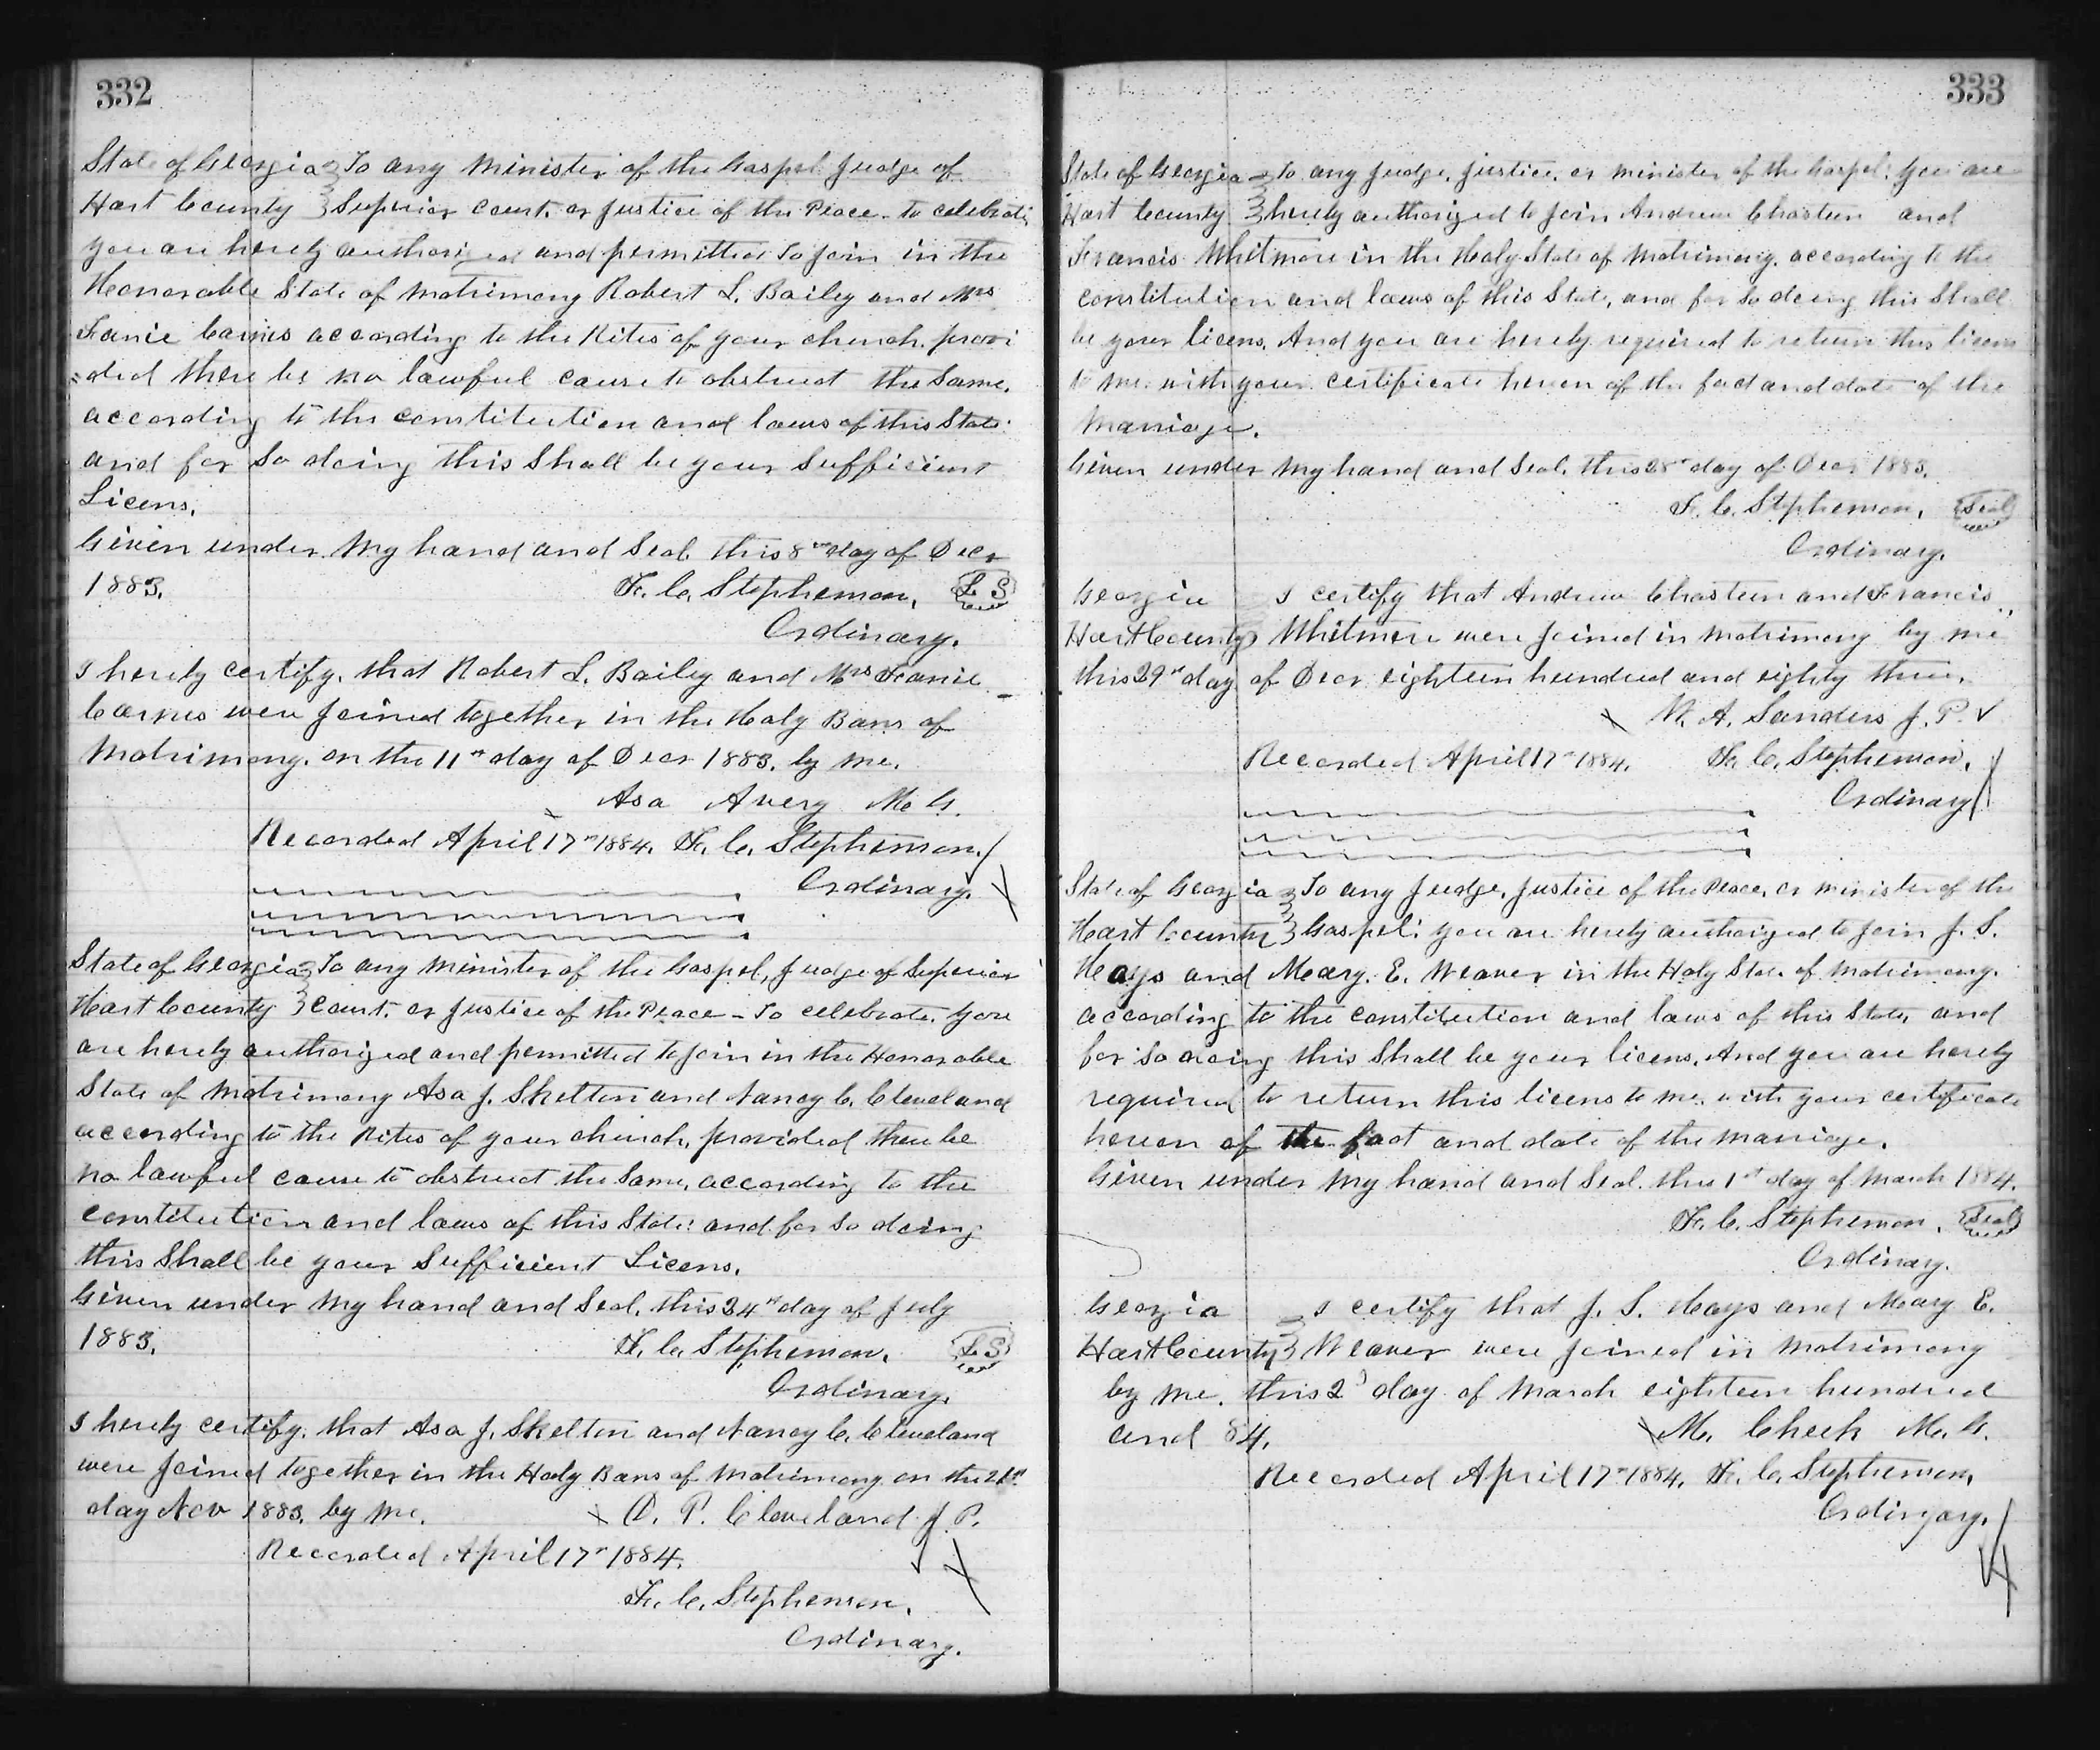 332
State of Georgia } To any Minister of the Gaspel Judge of
Hart County } Superior Court, or Justice of the Peace - to celebrate,
you are hereby authorized and permitted To Join in the
Honorable State of Matrimony Robert L. Bailey and Mrs
Fanie Carnes according to the Rites of your church, provi
=ded there be no lawful cause to obstruct the Same,
according to the constitution and laws of this State:
and for So doing this Shall be your Sufficient
Licens,
Given under My hand and Seal this 8th day of Decr
1883. F. C. Stephenson, L S
Ordinary.
I hereby certify, that Robert L. Bailey and Mrs Fanie
Carnes were Joined together in the Holy Bans of
Matrimony, on the 11th day of Decr 1883. by me.
Asa Avery M. G.
Recorded April 17th 1884. F. C. Stephenson,
Ordinary.
State of Georgia } To any Minister of the Gaspel, Judge of Superior
Hart County } Court, or Justice of the Peace - To celebrate, you
are hereby authorized and permitted to Join in the Honorable
State of Matrimony Asa J. Skelton and Nancy C. Cleveland
according to the Rites of your church, provided there be
no lawful cause to obstruct the Same, according to the
constitution and laws of this State: and for So doing
this Shall be your Sufficient Licens.
Given under My hand and Seal, this 24th day of July
1883. F. C. Stephenson, L S
Ordinary,
I hereby certify, that Asa J. Skelton and Nancy C. Cleveland
were Joined together in the Holy Bans of Matrimony on the 21st
day Nov 1883. by me. O. P. Cleveland J. P.
Recorded April 17th 1884.
F. C. Stephenson,
Ordinary.
333
State of Georgia } To any Judge, Justice, or Minister of the Gospel: You are
Hart County } hereby authorized to Join Andrew Chasteen and
Francis Whitmore in the Holy State of Matrimony, according to the
constitution and laws of this State, and for So doing this Shall
be your licens, And you are hereby required to return this licens
to me with your certificate hereon of the fact and date of the
Marriage.
Given under My hand and Seal, this 28th day of Decr 1883.
F. C. Stephenson, Seal
Ordinary.
Georgia I certify that Andrew Chasteen and Francis
Hart County } Whitmore were Joined in Matrimony by me
this 29th day of Decr eighteen hundred and eighty three.
W. A. Sanders J. P.
Recorded April 17th 1884. F. C. Stephenson,
Ordinary
State of Georgia } To any Judge, Justice of the Peace, or Minister of the
Hart County } Gaspel: you are hereby authorized to Join J. S.
Hays and Mary. E. Weaver in the Holy State of Matrimony.
according to the constitution and laws of this State, and
for So doing this Shall be your licens, And you are hereby
required to return this licens to me, with your certificate
hereon of the fact and date of the Marriage.
Given under My hand and Seal, this 1st day of March 1884.
F. C. Stephenson, Seal
Ordinary.
Georgia } I certify that J. S. Hays and Mary E.
Hart County } Weaver were Joined in Matrimony
by me. this 2d day of March eighteen hundred
and 84. M. Cheek M. G.
Recorded April 17th 1884. F. C. Stephenson,
Ordinary.